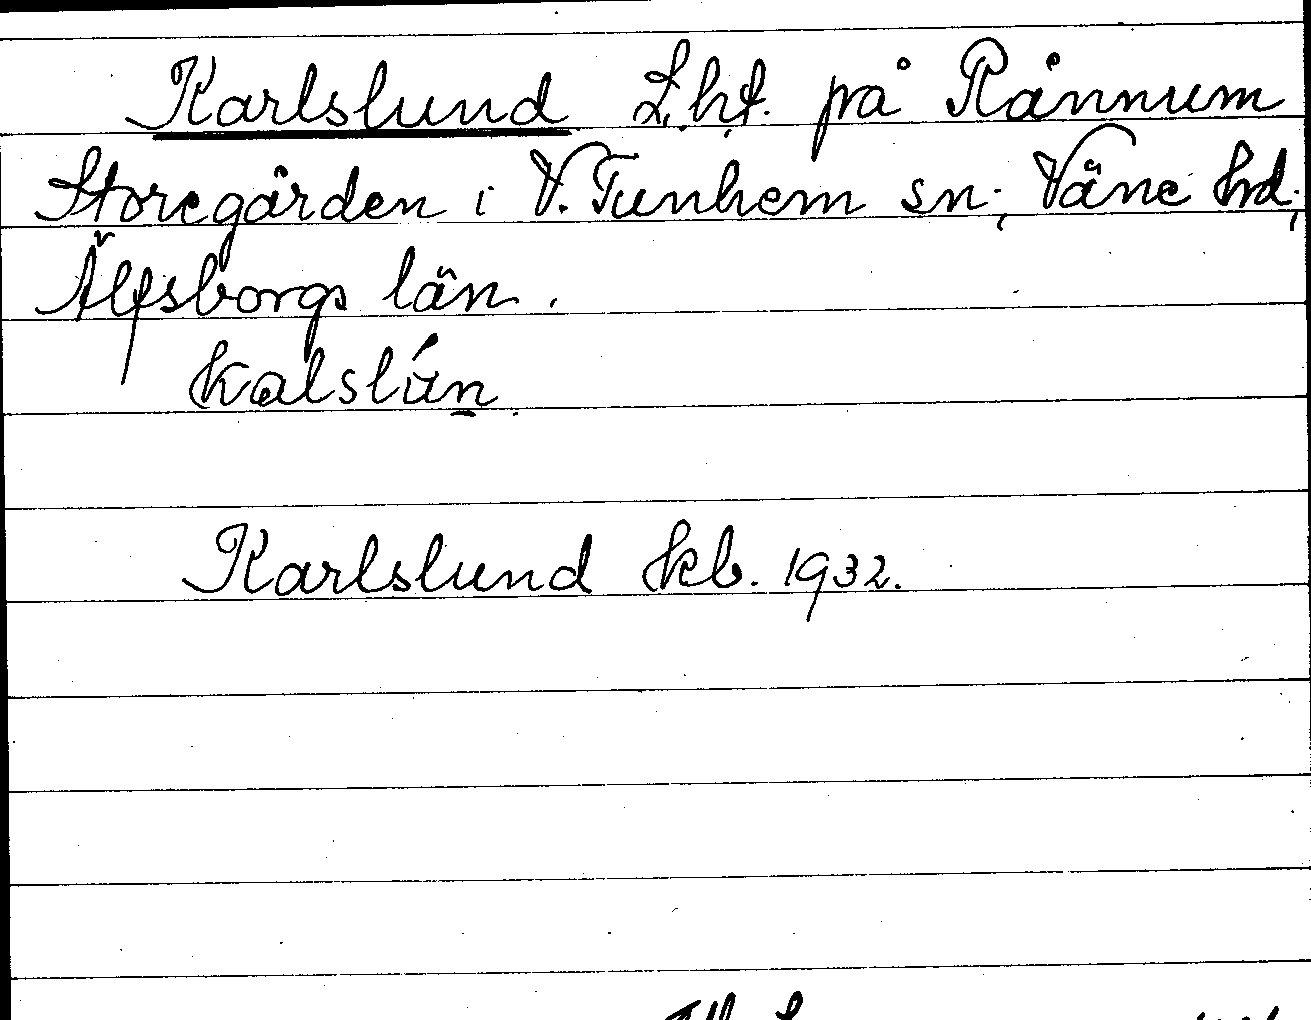 Karlslund L.ht. på Rånnum
Storegården i V. Tunhem sn., Väne hd.,
Älfsborgs län.
kalslún
Karlslund kb. 1932.